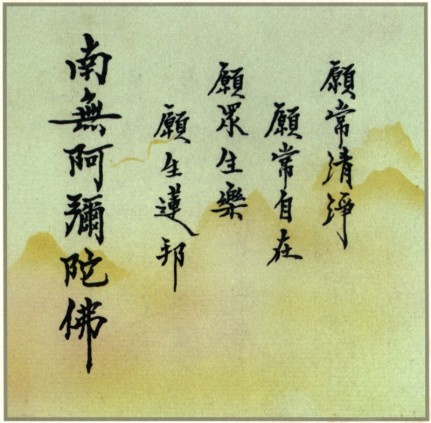 願常清淨
願常自在
願眾生樂
願生蓮邦
南無阿彌陀佛